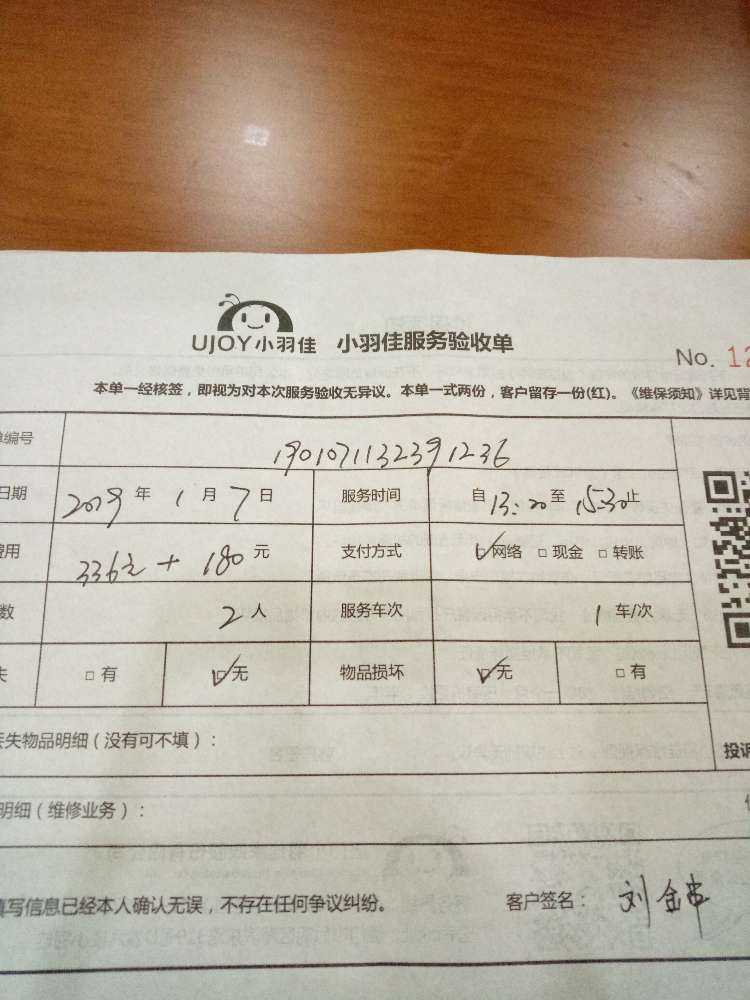 UJOY小羽佳 小羽佳服务验收单
No. 12
本单一经核签，即视为对本次服务验收无异议。本单一式两份，客户留存一份(红)。《维保须知》详见背
单编号 1901071132391236
日期 2019年1月7日 服务时间 自13:20至15:30止
费用 336元+180元 支付方式 ☑网络 □现金 □转账
数 2人 服务车次 1车/次
失 □有 ☑无 物品损坏 ☑无 □有
丢失物品明细（没有可不填）：
投诉
明细（维修业务）：
填写信息已经本人确认无误，不存在任何争议纠纷。 客户签名：刘金